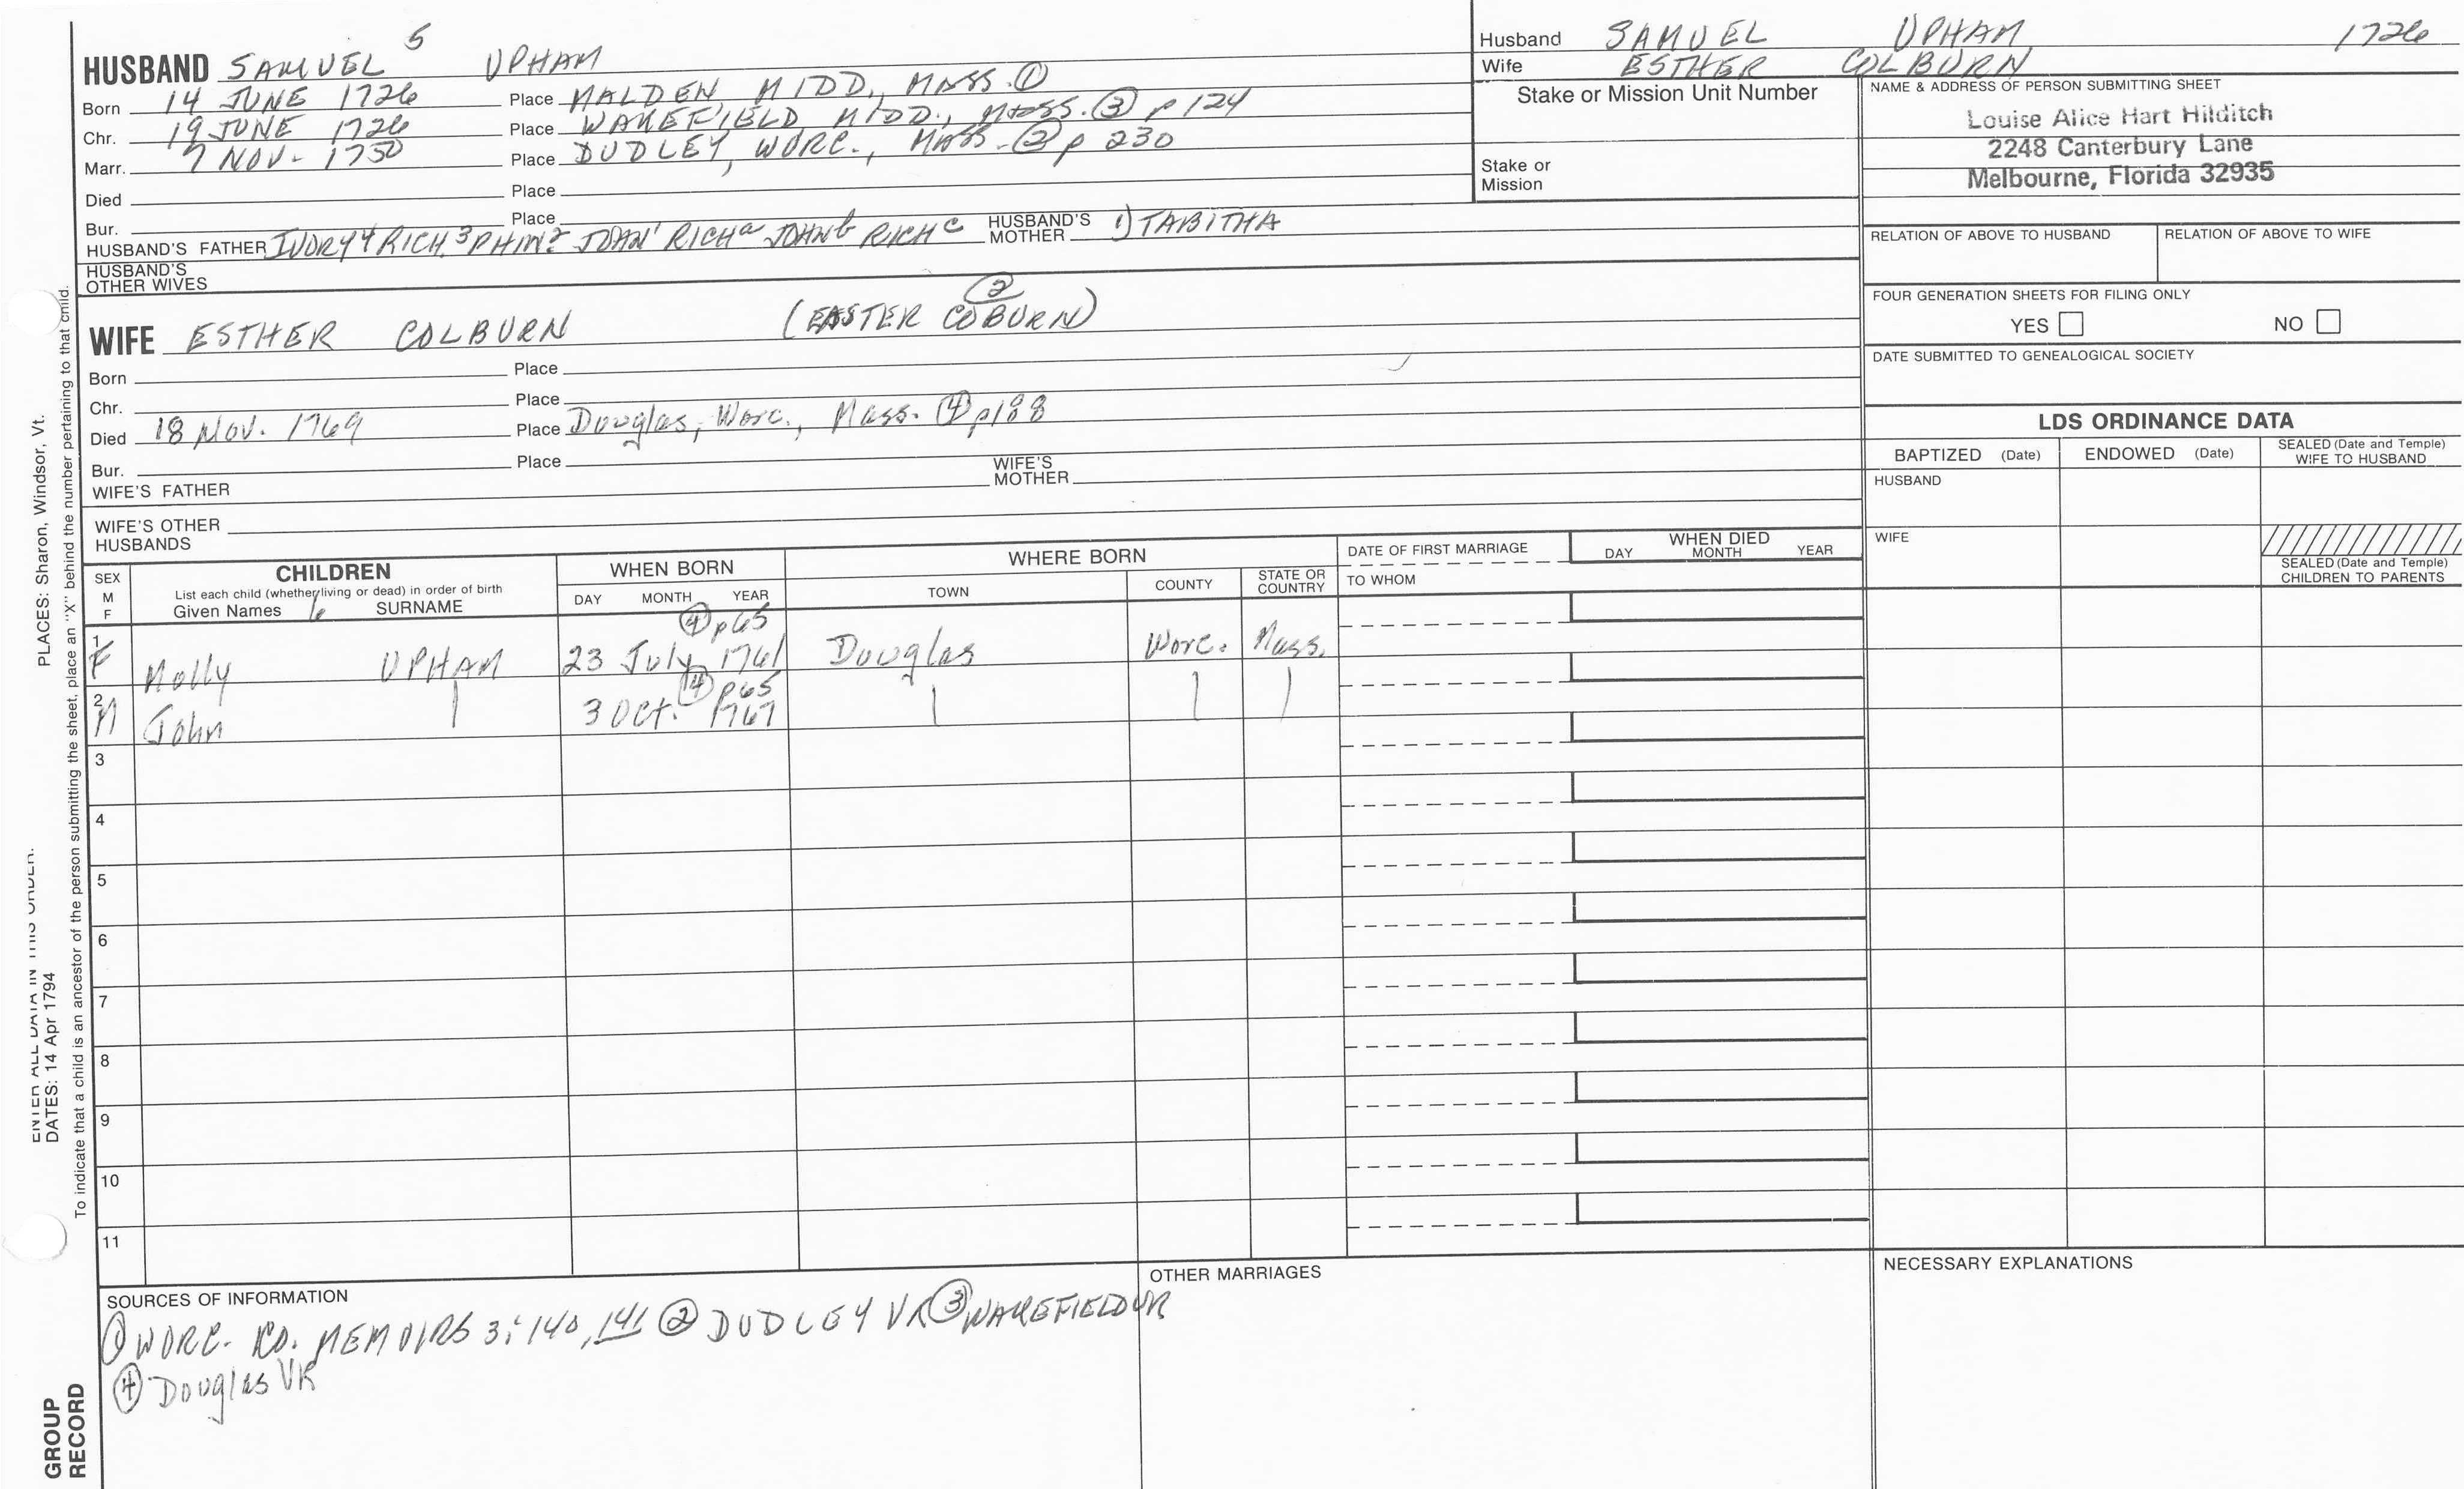 HUSBAND SAMUEL 5 UPHAM
Born 14 JUNE 1726 Place MALDEN MIDD., MASS. ①
Chr. 19 JUNE 1726 Place WAKEFIELD MIDD., MASS. ③ p 124
Marr. 7 NOV. 1750 Place DUDLEY, WORC., MASS. ② p 230
Died Place
Bur. Place
HUSBAND'S FATHER IVORY4 RICH.3 PHIN2 JOHN1 RICHa JOHNb RICHc HUSBAND'S MOTHER 1) TABITHA
HUSBAND'S OTHER WIVES
WIFE ESTHER COLBURN (EASTER COBURN) ②
Born Place
Chr. Place
Died 18 Nov. 1769 Place Douglas, Worc., Mass. ④ p188
Bur. Place
WIFE'S FATHER WIFE'S MOTHER
WIFE'S OTHER HUSBANDS
Husband SAMUEL UPHAM 1726
Wife ESTHER COLBURN
Stake or Mission Unit Number
Stake or
Mission
NAME & ADDRESS OF PERSON SUBMITTING SHEET
Louise Alice Hart Hilditch
2248 Canterbury Lane
Melbourne, Florida 32935
RELATION OF ABOVE TO HUSBAND RELATION OF ABOVE TO WIFE
FOUR GENERATION SHEETS FOR FILING ONLY
YES NO
DATE SUBMITTED TO GENEALOGICAL SOCIETY
LDS ORDINANCE DATA
BAPTIZED (Date) ENDOWED (Date) SEALED (Date and Temple) WIFE TO HUSBAND
HUSBAND
WIFE
SEALED (Date and Temple)
CHILDREN TO PARENTS
SEX M F
CHILDREN
List each child (whether living or dead) in order of birth
Given Names 6 SURNAME
WHEN BORN
DAY MONTH YEAR
WHERE BORN
TOWN COUNTY STATE OR COUNTRY
DATE OF FIRST MARRIAGE
TO WHOM
WHEN DIED
DAY MONTH YEAR
④ p65
1 F Molly UPHAM 23 July 1761 Douglas Worc. Mass.
④ p65
2 M John | 3 Oct. 1767 | | |
3
4
5
6
7
8
9
10
11
SOURCES OF INFORMATION
① WORC. CO. MEMOIRS 3:140, 141 ② DUDLEY VR ③ WAKEFIELD VR
④ Douglas VR
OTHER MARRIAGES
NECESSARY EXPLANATIONS
ENTER ALL DATA IN THIS ORDER:
DATES: 14 Apr 1794 PLACES: Sharon, Windsor, Vt.
To indicate that a child is an ancestor of the person submitting the sheet, place an "X" behind the number pertaining to that child.
GROUP
RECORD